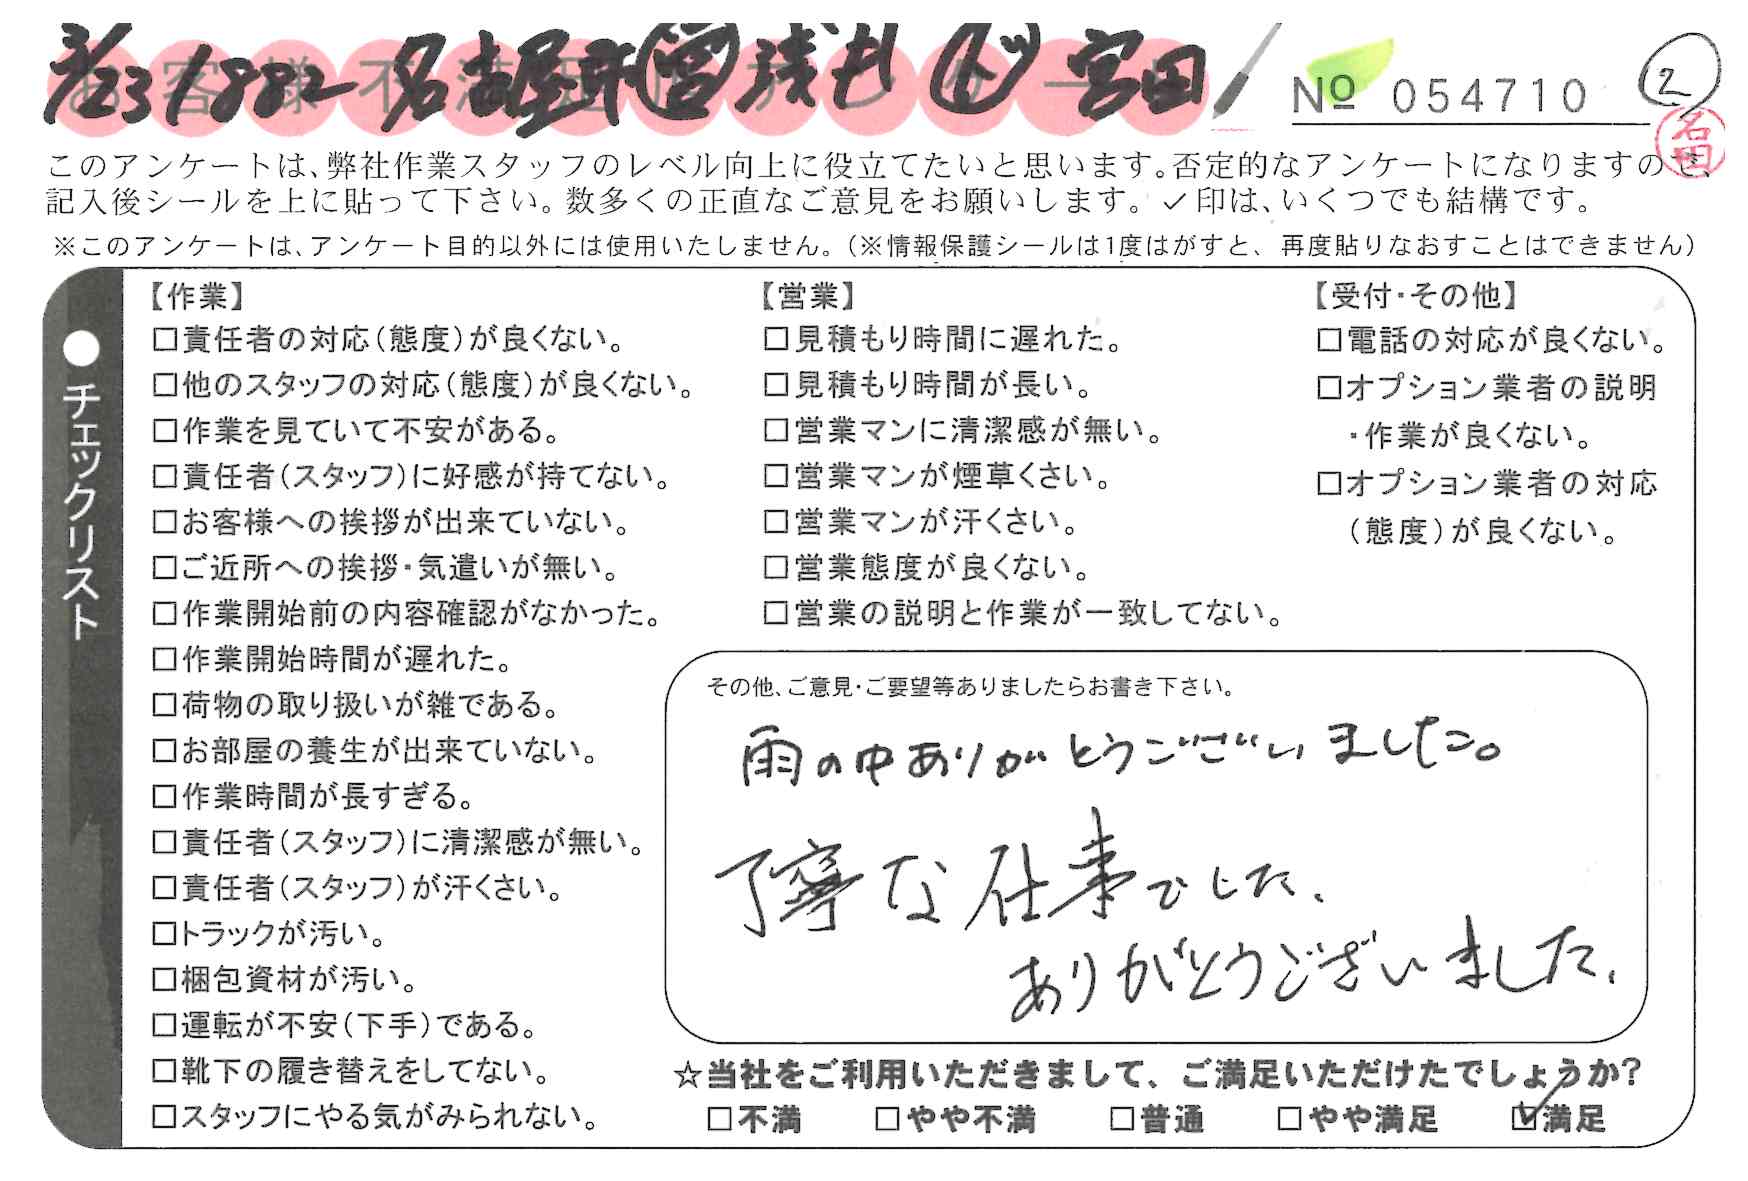 3/23 1882 名古屋市 営 浅井 ド 宮田
お客様不満足アンケート
No 054710 2
名四
このアンケートは、弊社作業スタッフのレベル向上に役立てたいと思います。否定的なアンケートになりますので、
記入後シールを上に貼って下さい。数多くの正直なご意見をお願いします。✓印は、いくつでも結構です。
※このアンケートは、アンケート目的以外には使用いたしません。(※情報保護シールは1度はがすと、再度貼りなおすことはできません)
●チェックリスト
【作業】
□責任者の対応(態度)が良くない。
□他のスタッフの対応(態度)が良くない。
□作業を見ていて不安がある。
□責任者(スタッフ)に好感が持てない。
□お客様への挨拶が出来ていない。
□ご近所への挨拶・気遣いが無い。
□作業開始前の内容確認がなかった。
□作業開始時間が遅れた。
□荷物の取り扱いが雑である。
□お部屋の養生が出来ていない。
□作業時間が長すぎる。
□責任者(スタッフ)に清潔感が無い。
□責任者(スタッフ)が汗くさい。
□トラックが汚い。
□梱包資材が汚い。
□運転が不安(下手)である。
□靴下の履き替えをしてない。
□スタッフにやる気がみられない。
【営業】
□見積もり時間に遅れた。
□見積もり時間が長い。
□営業マンに清潔感が無い。
□営業マンが煙草くさい。
□営業マンが汗くさい。
□営業態度が良くない。
□営業の説明と作業が一致してない。
【受付・その他】
□電話の対応が良くない。
□オプション業者の説明
・作業が良くない。
□オプション業者の対応
(態度)が良くない。
その他、ご意見・ご要望等ありましたらお書き下さい。
雨の中ありがとうございました。
丁寧な仕事でした、
ありがとうございました、
☆当社をご利用いただきまして、ご満足いただけたでしょうか?
□不満 □やや不満 □普通 □やや満足 ☑満足